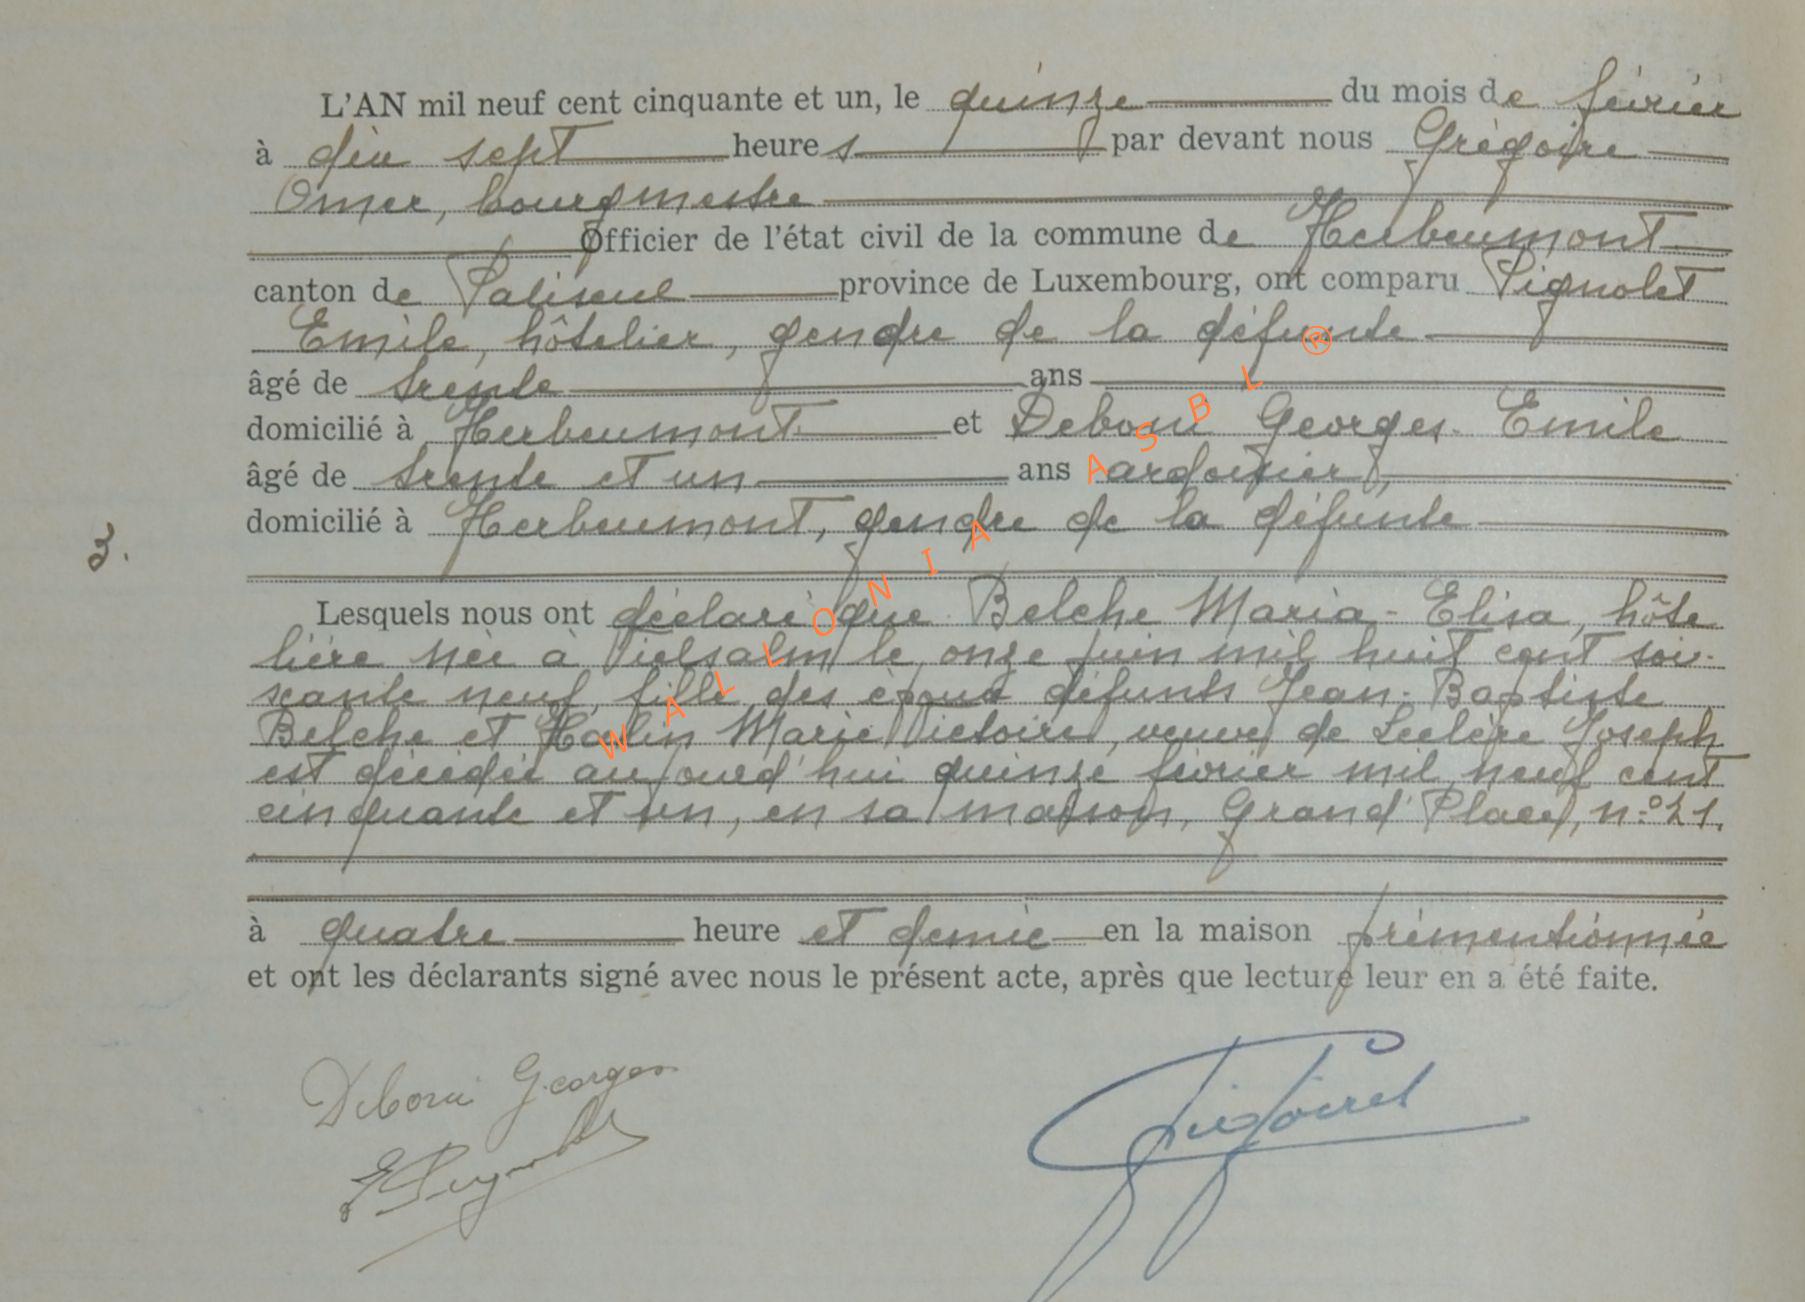 L'AN mil neuf cent cinquante et un, le quinze du mois de février
à dix sept heures par devant nous Grégoire
Omer, bourgmestre
Officier de l'état civil de la commune de Herbeumont
canton de Paliseul province de Luxembourg, ont comparu Pignolet
Emile, hôtelier, gendre de la défunte
âgé de trente ans
domicilié à Herbeumont et Deboni Georges-Emile
âgé de trente et un ans ardoisier,
domicilié à Herbeumont, gendre de la défunte
3.
Lesquels nous ont déclaré que Belche Maria-Elisa, hôte
lière née à Vielsalm le onze juin mil huit cent soi-
xante neuf, fille des époux défunts Jean-Baptiste
Belche et Marie Victoire, veuve de Leclère Joseph
est décédée aujourd'hui quinze février mil neuf cent
cinquante et un, en sa maison, Grand'Place, n:°21.
à quatre heure et demie en la maison prémentionnée
et ont les déclarants signé avec nous le présent acte, après que lecture leur en a été faite.
Deboni Georges
E Pignolet
WALLONIA ASBL ®